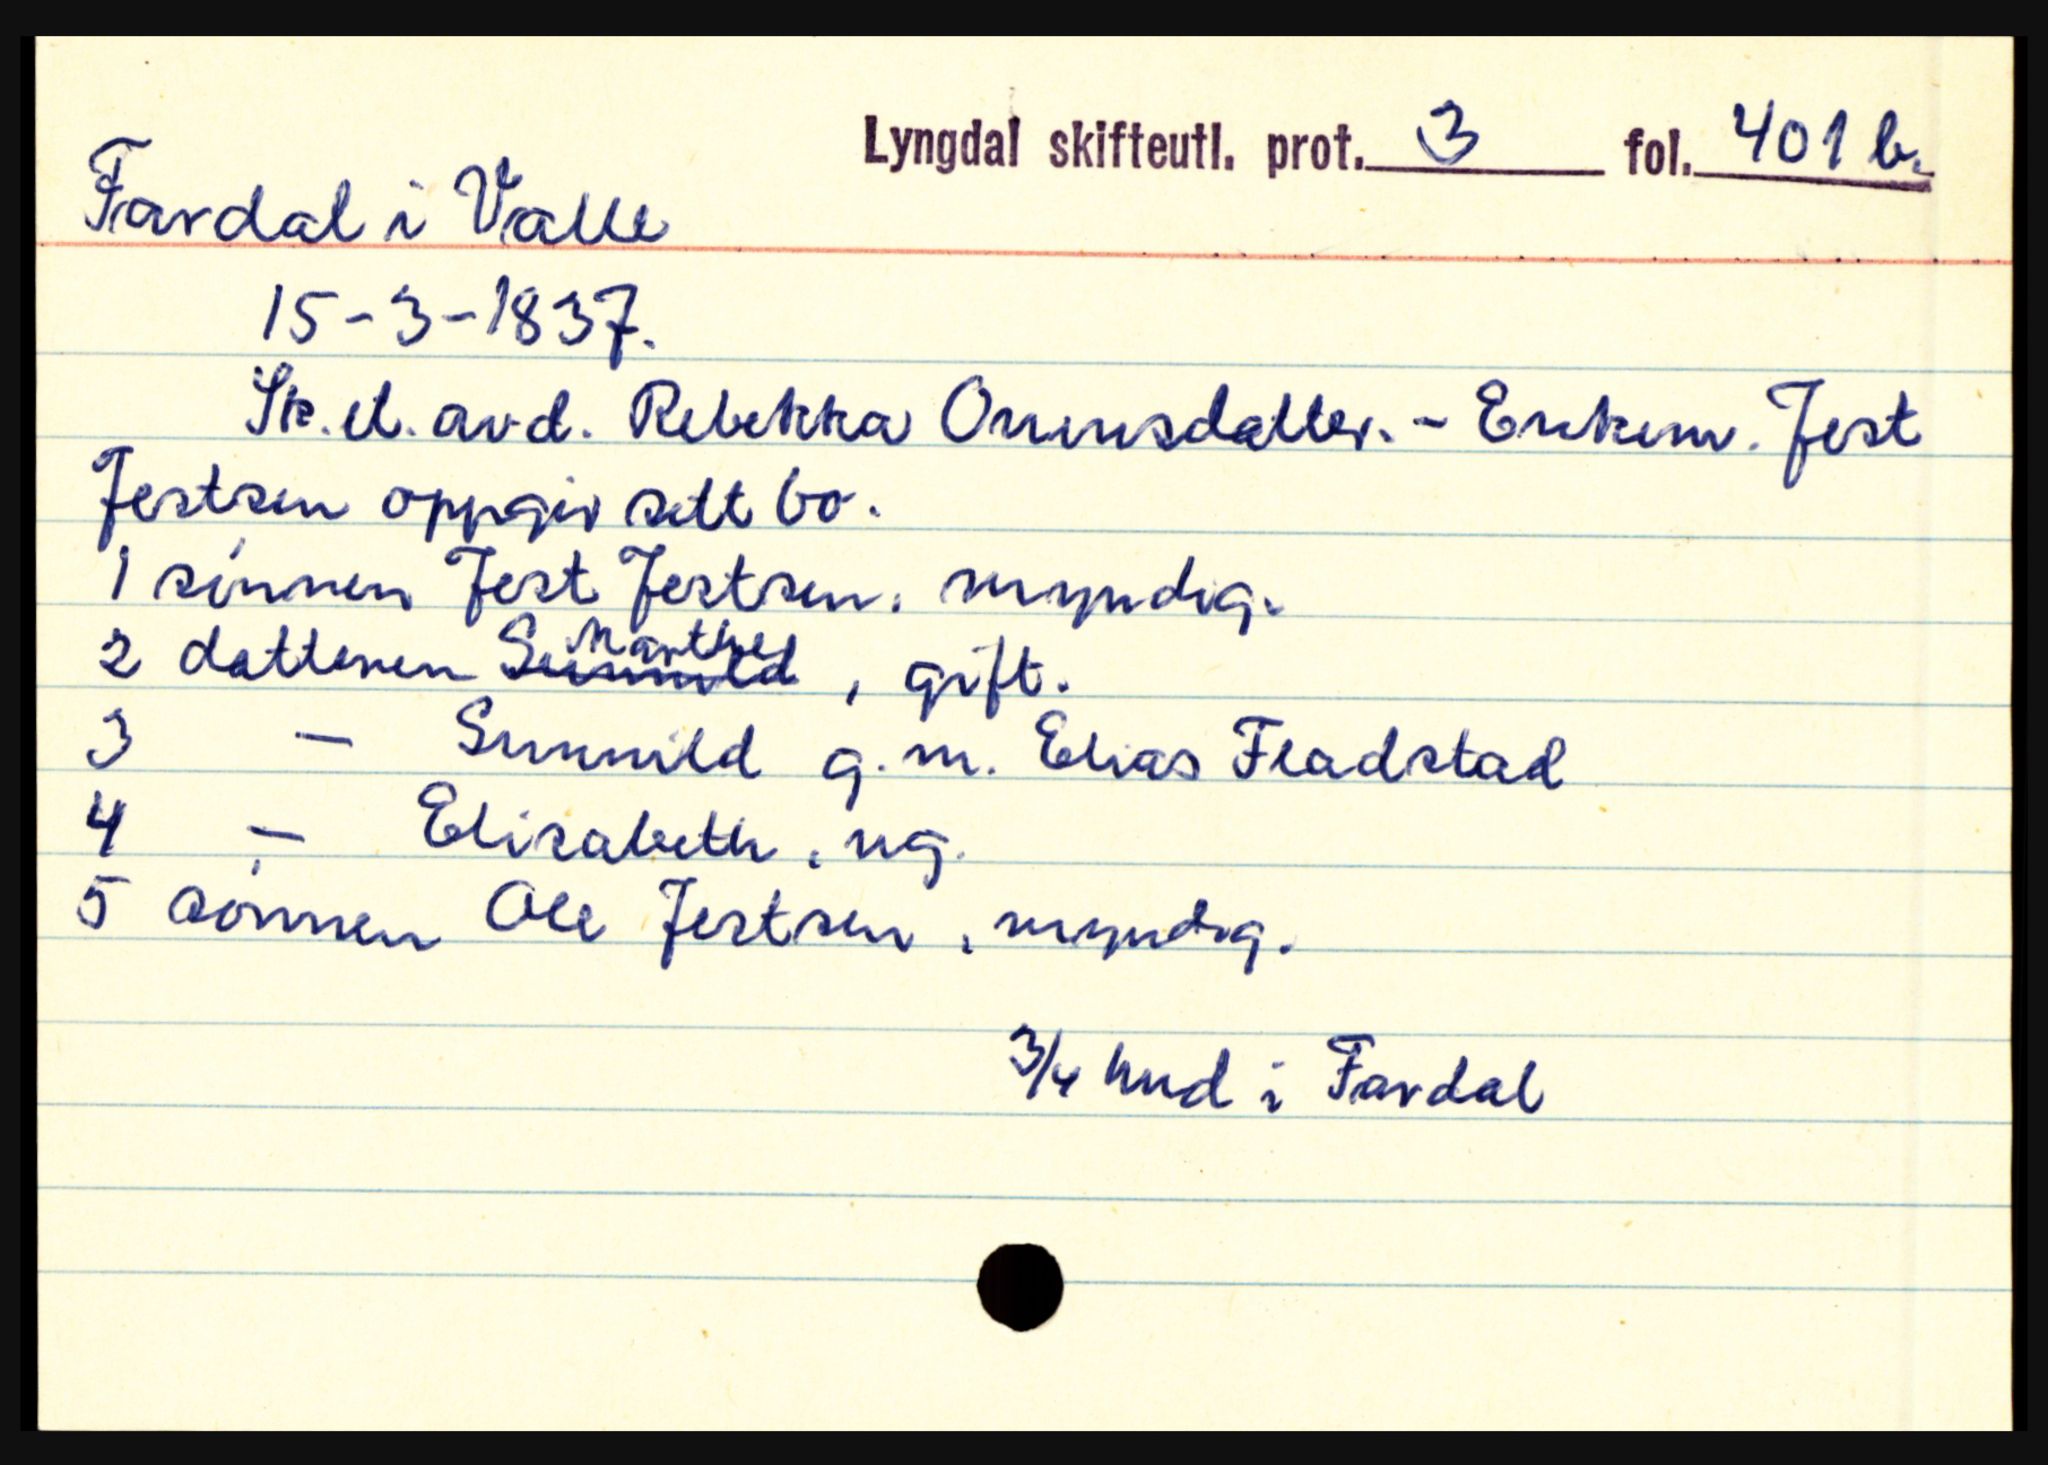 Lyngdal skifteutl. prot. 3 fol. 401 b.
Fardal i Valle
15-3-1837.
Sk. et. av d. Rebekka Onunsdatter. - Enkem. Jest
Jestsen oppgir sitt bo.
1 sønnen Jest Jestsen, myndig.
2 datteren Sunnild Marthe, gift.
3 — Sunnild g. m. Elias Fladstad
4 — Elisabeth, ug.
5 sønnen Ole Jestsen, myndig.
3/4 hud i Fardal